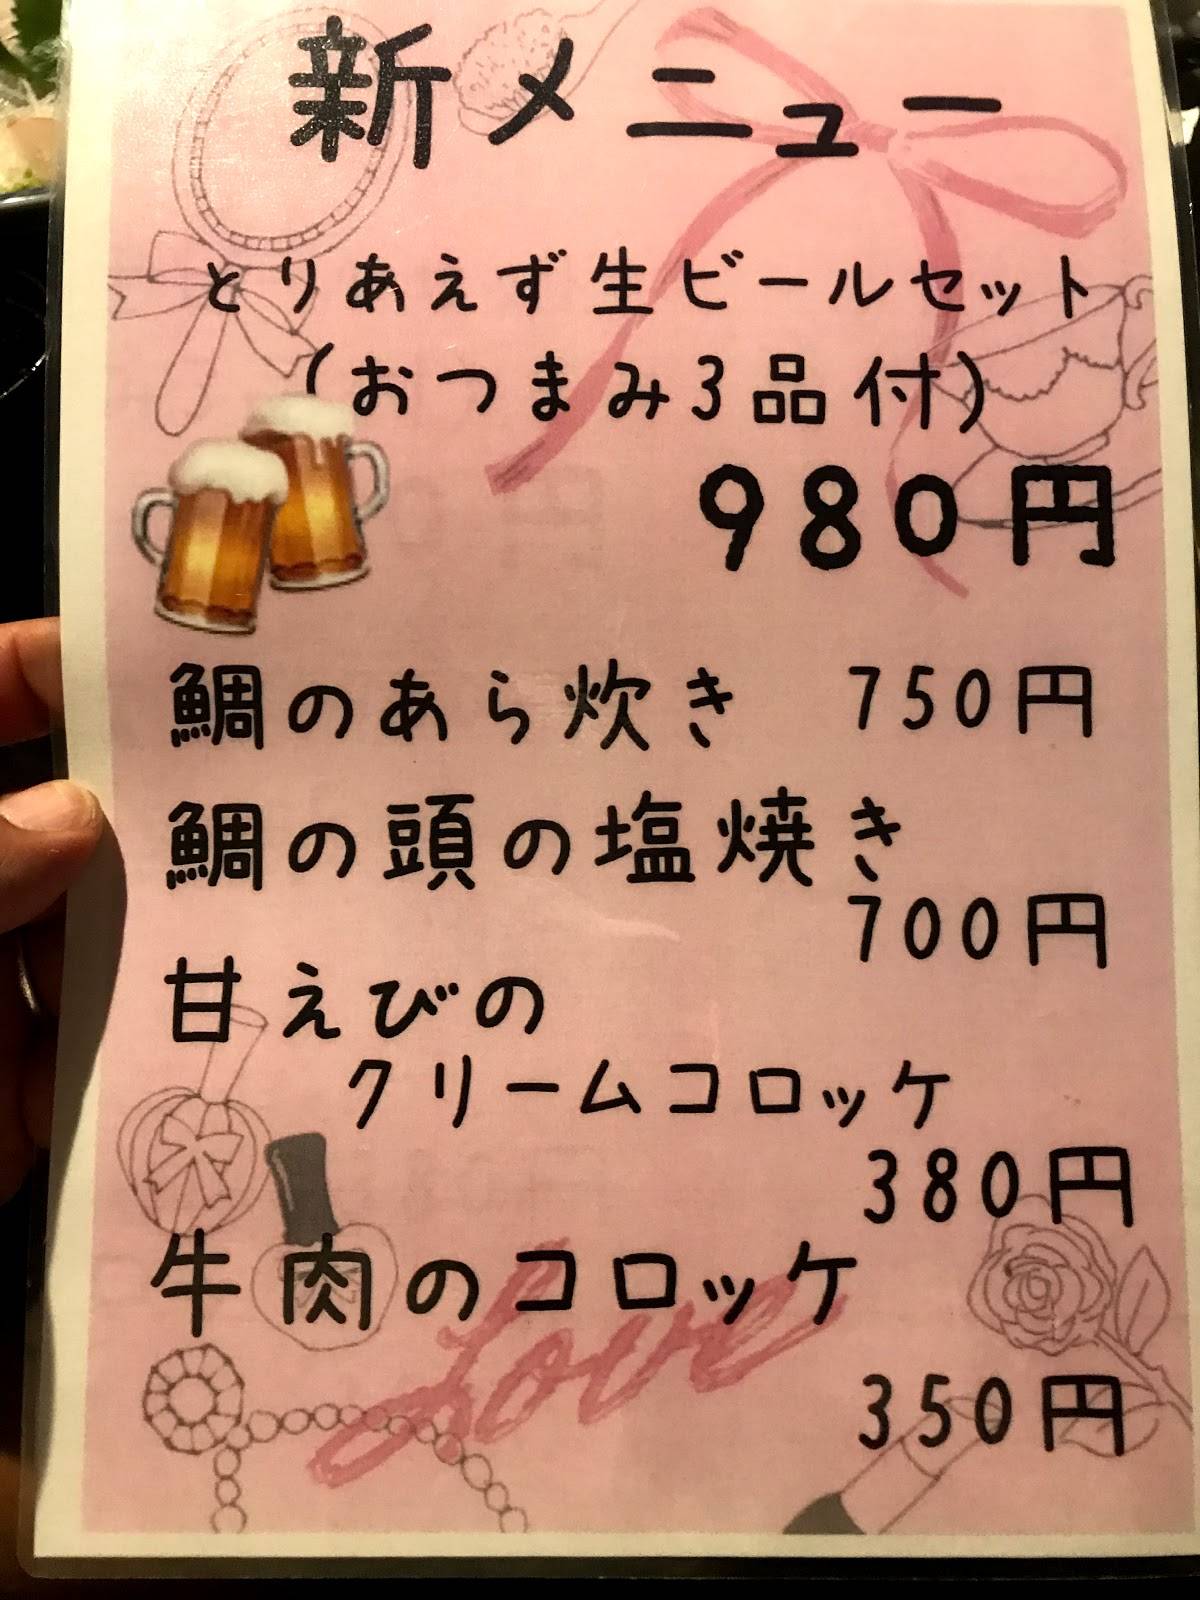 新メニュー
とりあえず生ビールセット
(おつまみ3品付)
980円
鯛のあら炊き 750円
鯛の頭の塩焼き
700円
甘えびの
クリームコロッケ
380円
牛肉のコロッケ
Love
350円